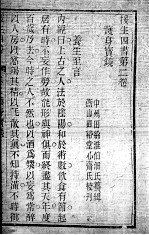 生書第二卷
護身寶鏡
中州
裕堂心齋氏校刊
養生至言
內經曰上古之人法於陰陽和於術數飲食有節起
居有不妄作勞故能形與神俱而終盡其天年度
百歲乃去今時之人不然也以酒為漿以妄為常醉
以入房以竭其精以耗散其真不知持滿不時御